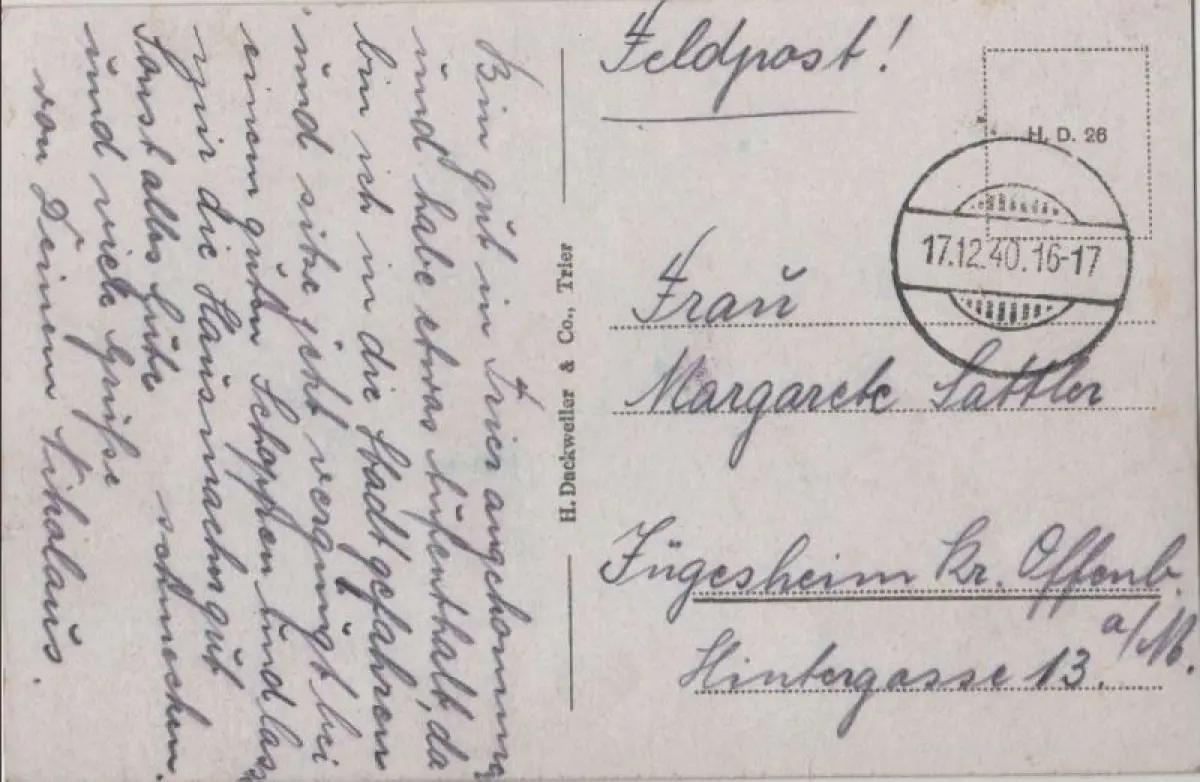 Bin gut in Trier angekommen
und habe etwas Aufenthalt, da
bin ich in die Stadt gefahren
und sitze jetzt vergnügt bei
einem guten Schoppen und lass
mir die Hausmacher gut
schmecken.
Sonst alles gute
und viele Grüße
von Deinem Nikolaus.
H. Dackweiler & Co., Trier
Feldpost!
H. D. 26
17.12.40.16-17
Frau
Margarete Sattler
Jügesheim Kr. Offenb.
a/M.
Hintergasse 13.